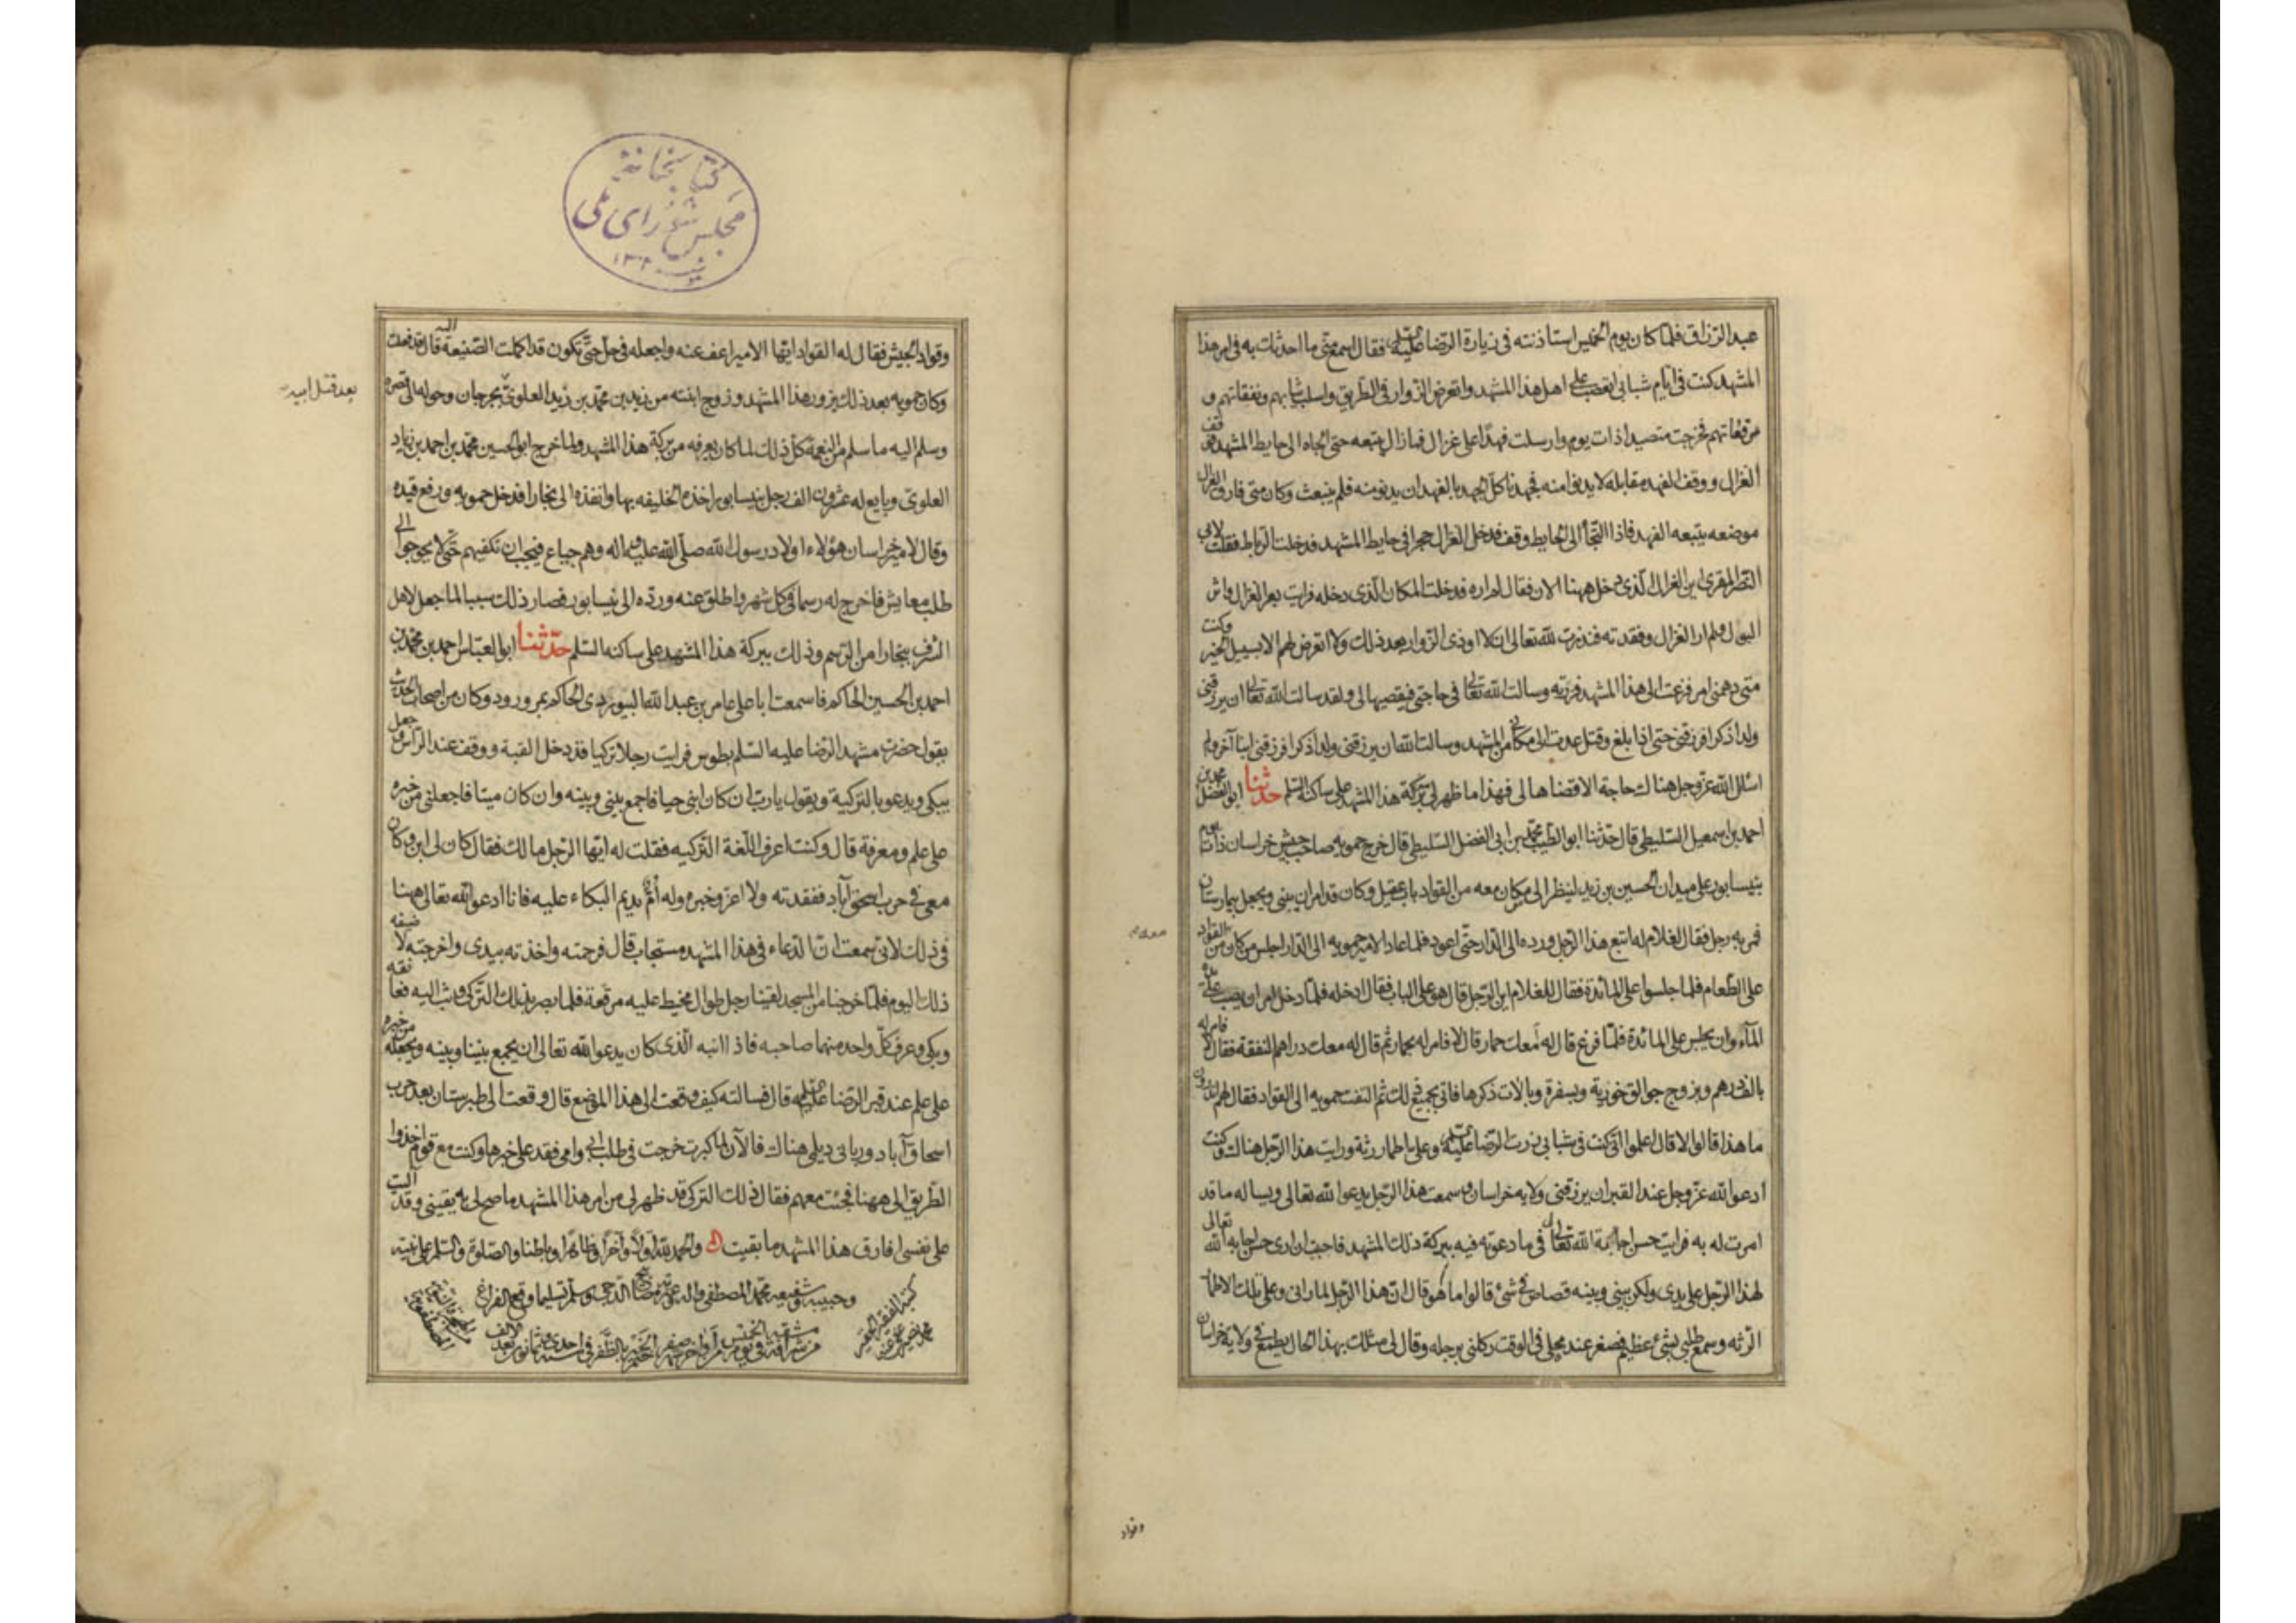 عبد الرزاق فلما كان يوم الخميس استاذنته فى زيارة الرضا عليه السلم فقال اسمع منى ما احدثك به فى امر هذا
المشهد كنت فى ايام شبابى اتعصب على اهل هذا المشهد واتعرض الزوار فى الطريق واسلب ثيابهم ونفقاتهم و
مرقعاتهم فخرجت متصيدا ذات يوم وارسلت فهدا على غزال فمازال يتبعه حتى الجاه الى حايط المشهد فوقف
الغزال ووقف الفهد مقابله لا يدنو منه فجهدنا كل الجهد بالفهد ان يدنو منه فلم ينبعث وكان متى فارق الغزال
موضعه يتبعه الفهد فاذا التجأ الى الحايط وقف فدخل الغزال حجرا فى حايط المشهد فدخلت الرباط فقلت لابى
النصر المقرى اين الغزال الذى دخل ههنا الان فقال لم اره فدخلت المكان الذى دخله فرايت بعر الغزال واثر
البول ولم ار الغزال وفقدته فنذرت لله تعالى ان لا اوذى الزوار بعد ذلك ولا اتعرض لهم الا بسبيل الخير وكنت
متى دهمنى امر فزعت الى هذا المشهد فزرته وسالت الله تعالى فى حاجتى فيقضيها لى ولقد سالت الله تعالى ان يرزقنى
ولدا ذكرا فرزقنى حتى اذا بلغ وقتل عدت الى مكانى من المشهد وسالت الله ان يرزقنى ولدا ذكرا فرزقنى ابنا آخر ولم
اسئل الله عز وجل هناك حاجة الا قضاها لى فهذا ما ظهر لى من بركة هذا المشهد على ساكنه السلم حدثنا ابو الفضل محمد بن
احمد بن اسمعيل السليطى قال حدثنا ابو الطيب محمد بن ابى الفضل السليطى قال خرج حمويه صاحب جيش خراسان ذات يوم
بنيسابور على ميدان الحسين بن زيد لينظر الى من كان معه من القواد بباب عقيل وكان قد امر ان يبنى ويجعل بيمارستان
فمر به رجل فقال لغلام له اتبع هذا الرجل ورده الى الدار حتى اعود فلما عاد الامير حمويه الى الدار اجلس من كان معه من القواد
على الطعام فلما جلسوا على المائدة فقال للغلام اين الرجل قال هو على الباب فقال ادخله فلما دخل امر ان يصب على يده
المآء وان يجلس على المائدة فلما فرغ قال له أمعك حمار قال لا فامر له بحمار ثم قال له معك دراهم للنفقة فقال لا فامر له
بالف درهم وبزوج جوالق خوزية وبسفرة وبالات ذكرها فاتى بجميع ذلك ثم التفت حمويه الى القواد فقال لهم اتدرون
ما هذا قالوا لا قال اعلموا انى كنت فى شبابى زرت الرضا عليه السلم وعلى اطمار رثة ورايت هذا الرجل هناك وكنت
ادعو الله عز وجل عند القبر ان يرزقنى ولاية خراسان وسمعت هذا الرجل يدعو الله تعالى ويساله ما قد
امرت له به فرايت حسن اجابة الله تعالى لى فى ما دعوته فيه ببركة ذلك المشهد فاحب ان ارى حسن اجابة الله تعالى
لهذا الرجل على يدى ولكن بينى وبينه قصاص فى شئ قالوا ما هو قال ان هذا الرجل لما رانى وعلى تلك الاطمار
الرثه وسمع طلبى بشئ عظيم فصغر عنده محلى فى الوقت ركلنى برجله وقال لى مثلك بهذا الحال يطمع فى ولاية خراسان
وقواد
كتابخانه
مجلس شوراى ملى
وقواد الجيش فقال له القواد ايها الامير اعف عنه واجعله فى حل حتى تكون قد اكملت الصنيعة اليه قال قد فعلت
وكان حمويه بعد ذلك يزور هذا المشهد وزوج ابنته من زيد بن محمد بن زيد العلوى بجرجان وحوله الى قصره
بعد قتل ابيه
وسلم اليه ما سلم من النعمة كل ذلك لما كان يعرفه من بركة هذا المشهد ولما خرج ابو الحسين محمد بن احمد بن زياد
العلوى وبايع له عشرون الف رجل بنيسابور اخذه الخليفه بها وانفذه الى بخارا فدخل حمويه ورفع قيده
وقال لامير خراسان هؤلاء اولاد رسول الله صلى الله عليه واله وهم جياع فيجب ان تكفيهم حتى لا يحوجوا الى
طلب معايش فاخرج له رسما فى كل شهر واطلق عنه ورده الى نيسابور فصار ذلك سببا لما جعل لاهل
الشرف ببخارا من الرسم وذلك ببركة هذا المشهد على ساكنه السلم حدثنا ابو العباس احمد بن محمد بن
احمد بن الحسين الحاكم فا سمعت ابا على عامر بن عبد الله البيوردى الحاكم بمرورود وكان من اصحاب الحديث
يقول حضرت مشهد الرضا عليه السلم بطوس فرايت رجلا تركيا قد دخل القبة ووقف عند الراس وجعل
يبكى ويدعو بالتركية ويقول يا رب ان كان ابنى حيا فاجمع بينى وبينه وان كان ميتا فاجعلنى من خبره
على علم ومعرفة قال وكنت اعرف اللغة التركيه فقلت له ايها الرجل مالك فقال كان لى ابن وكان
معى فى حرب اسحق آباد ففقدته ولا اعرف خبره وله أم تديم البكاء عليه فانا ادعو الله تعالى ههنا
فى ذلك لانى سمعت ان الدعاء فى هذا المشهد مستجاب قال فرحمته واخذته بيدى واخرجته لاضيفه
ذلك اليوم فلما خرجنا من المسجد لقينا رجل طوال مختط عليه مرقعة فلما بصر بذلك التركى وثب اليه فعانقه
وبكى وعرف كل واحد منهما صاحبه فاذا ابنه الذى كان يدعو الله تعالى ان يجمع بيننا وبينه ويجعله من خبره
على علم عند قبر الرضا عليه السلم قال فسالته كيف وقعت الى هذا الموضع قال وقعت الى طبرستان بعد حرب
اسحاق آباد وربانى ديلمى هناك فالآن لما كبرت خرجت فى طلب ابى وامى فقد على خبرهما وكنت مع قوم اخذوا
الطريق الى ههنا فجئت معهم فقال ذلك التركى قد ظهر لى من امر هذا المشهد ما صح لى به يقينى وقد آليت
على نفسى ان لا افارق هذا المشهد ما بقيت والحمد لله اولا وآخرا وظاهرا وباطنا والصلوة والسلم على نبيه
وحبيبه وشفيعه محمد المصطفى واله وعترته مصابيح الدجى وسلم تسليما وقع الفراغ
كتبه الفقير الحقير